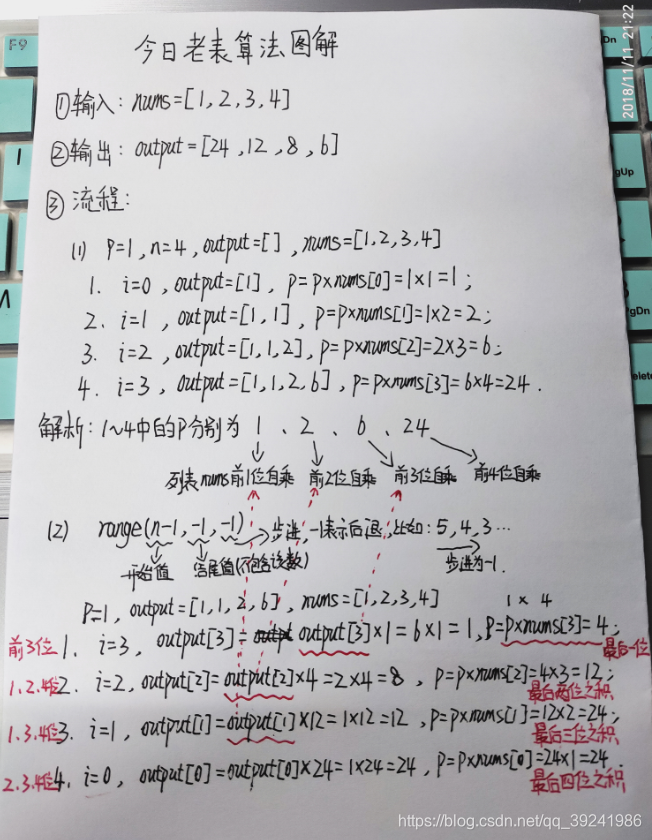 F9
2018/11/11 21:22
今日老表算法图解
①输入: nums=[1,2,3,4]
②输出: output=[24,12,8,6]
③ 流程:
(1) P=1, n=4, output=[], nums=[1,2,3,4]
1. i=0, output=[1], P=P×nums[0]=1×1=1;
2. i=1, output=[1,1], P=P×nums[1]=1×2=2;
3. i=2, output=[1,1,2], P=P×nums[2]=2×3=6;
4. i=3, output=[1,1,2,6], P=P×nums[3]=6×4=24.
解析: 1~4中的P分别为 1、2、6、24
列表nums前1位自乘 前2位自乘 前3位自乘 前4位自乘
(2) range(n-1, -1, -1) 步进,-1表示后退,比如: 5,4,3…
开始值 结尾值(不包含该数) 步进为-1.
P=1, output=[1,1,2,6], nums=[1,2,3,4] 1×4
前3位 1. i=3, output[3]= output[3]×1=6×1=1, P=P×nums[3]=4; 最后一位
1.2.4位 2. i=2, output[2]=output[2]×4=2×4=8, P=P×nums[2]=4×3=12;
最后两位之积
1.3.4位 3. i=1, output[1]=output[1]×12=1×12=12, P=P×nums[1]=12×2=24;
最后三位之积
2.3.4位 4. i=0, output[0]=output[0]×24=1×24=24, P=P×nums[0]=24×1=24.
最后四位之积
https://blog.csdn.net/qq_39241986